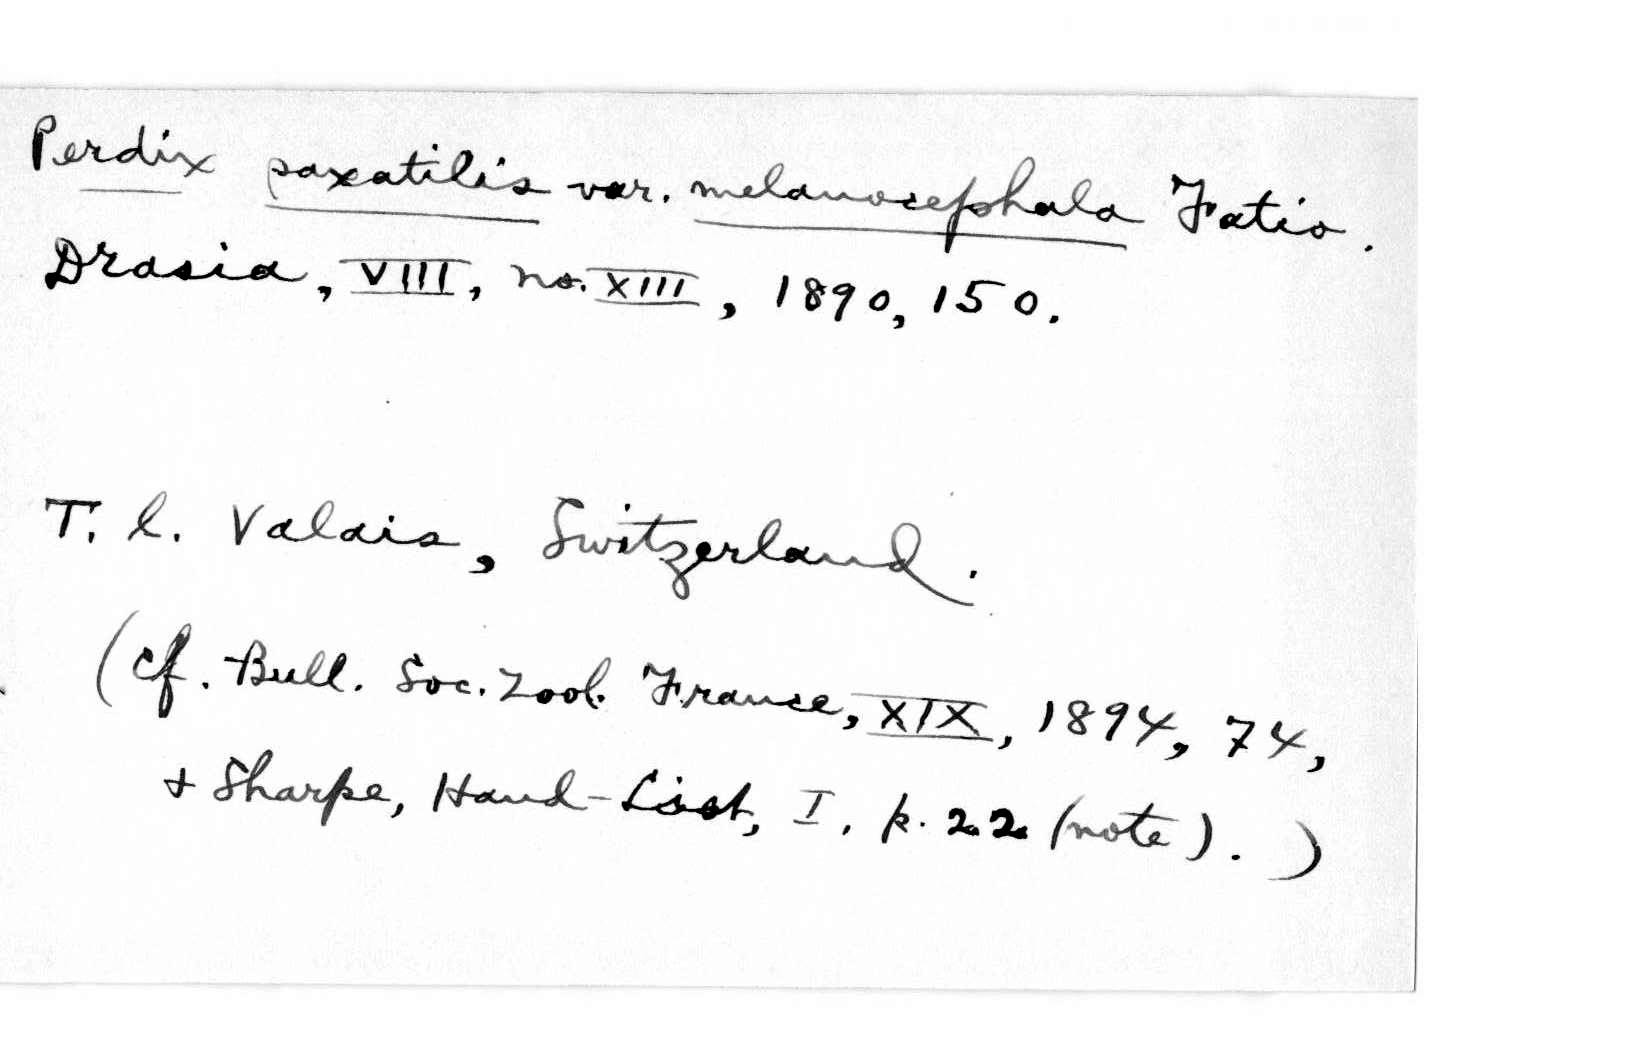 Perdix saxatilis var. melanocephala Fatio.
Drasia, VIII, no. XIII, 1890, 150.
T. l. Valais, Switzerland.
(cf. Bull. Soc. Zool. France, XIX, 1894, 74,
+ Sharpe, Hand-List, I, p. 22 (note). )